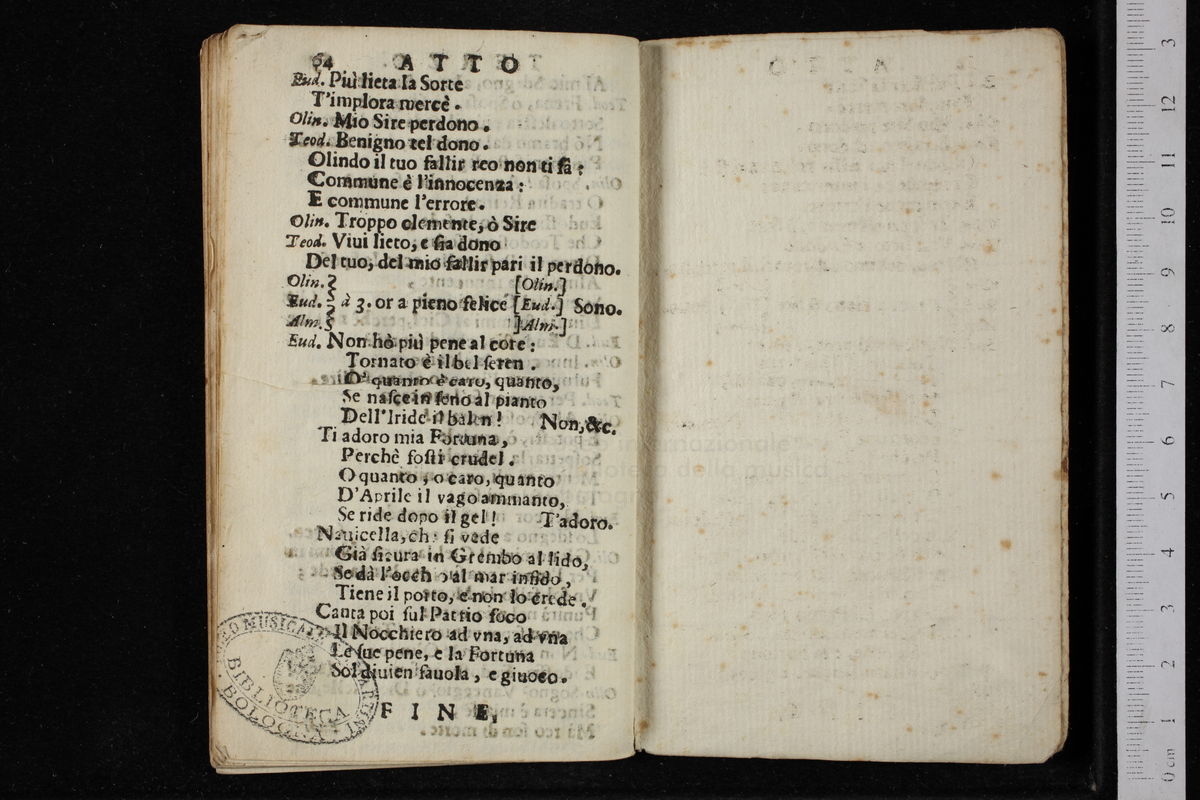 64 ATTO
Eud. Più lieta la Sorte
T'implora mercè.
Olin. Mio Sire perdono.
Teod. Benigno tel dono.
Olindo il tuo fallir reo non ti fà:
Commune è l'innocenza:
E commune l'errore.
Olin. Troppo clemente, ò Sire
Teod. Viui lieto, e sia dono
Del tuo, del mio fallir pari il perdono.
Olin. [Olin.]
Eud. à 3. or a pieno felice [Eud.] Sono.
Alm. ]Alm.]
Eud. Non hò più pene al core:
Tornato è il bel seren.
O' quanto è caro, quanto,
Se nasce in seno al pianto
Dell'Iride il balen! Non, &c.
Ti adoro mia Fortuna,
Perchè fosti crudel.
O quanto, o caro, quanto
D'Aprile il vago ammanto,
Se ride dopo il gel! T'adoro.
Nauicella, che si vede
Già sicura in Grembo al lido,
Se dà l'occhio al mar infido,
Tiene il porto, e non lo crede.
Canta poi sul Pattrio foco
Il Nocchiero ad vna, ad vna
Le sue pene, e la Fortuna
Sol diuien fauola, e giuoco.
FINE.
MUSICALE
BIBLIOTECA
BOLOGNA
internazionale
biblioteca della musica
0 cm 1 2 3 4 5 6 7 8 9 10 11 12 3